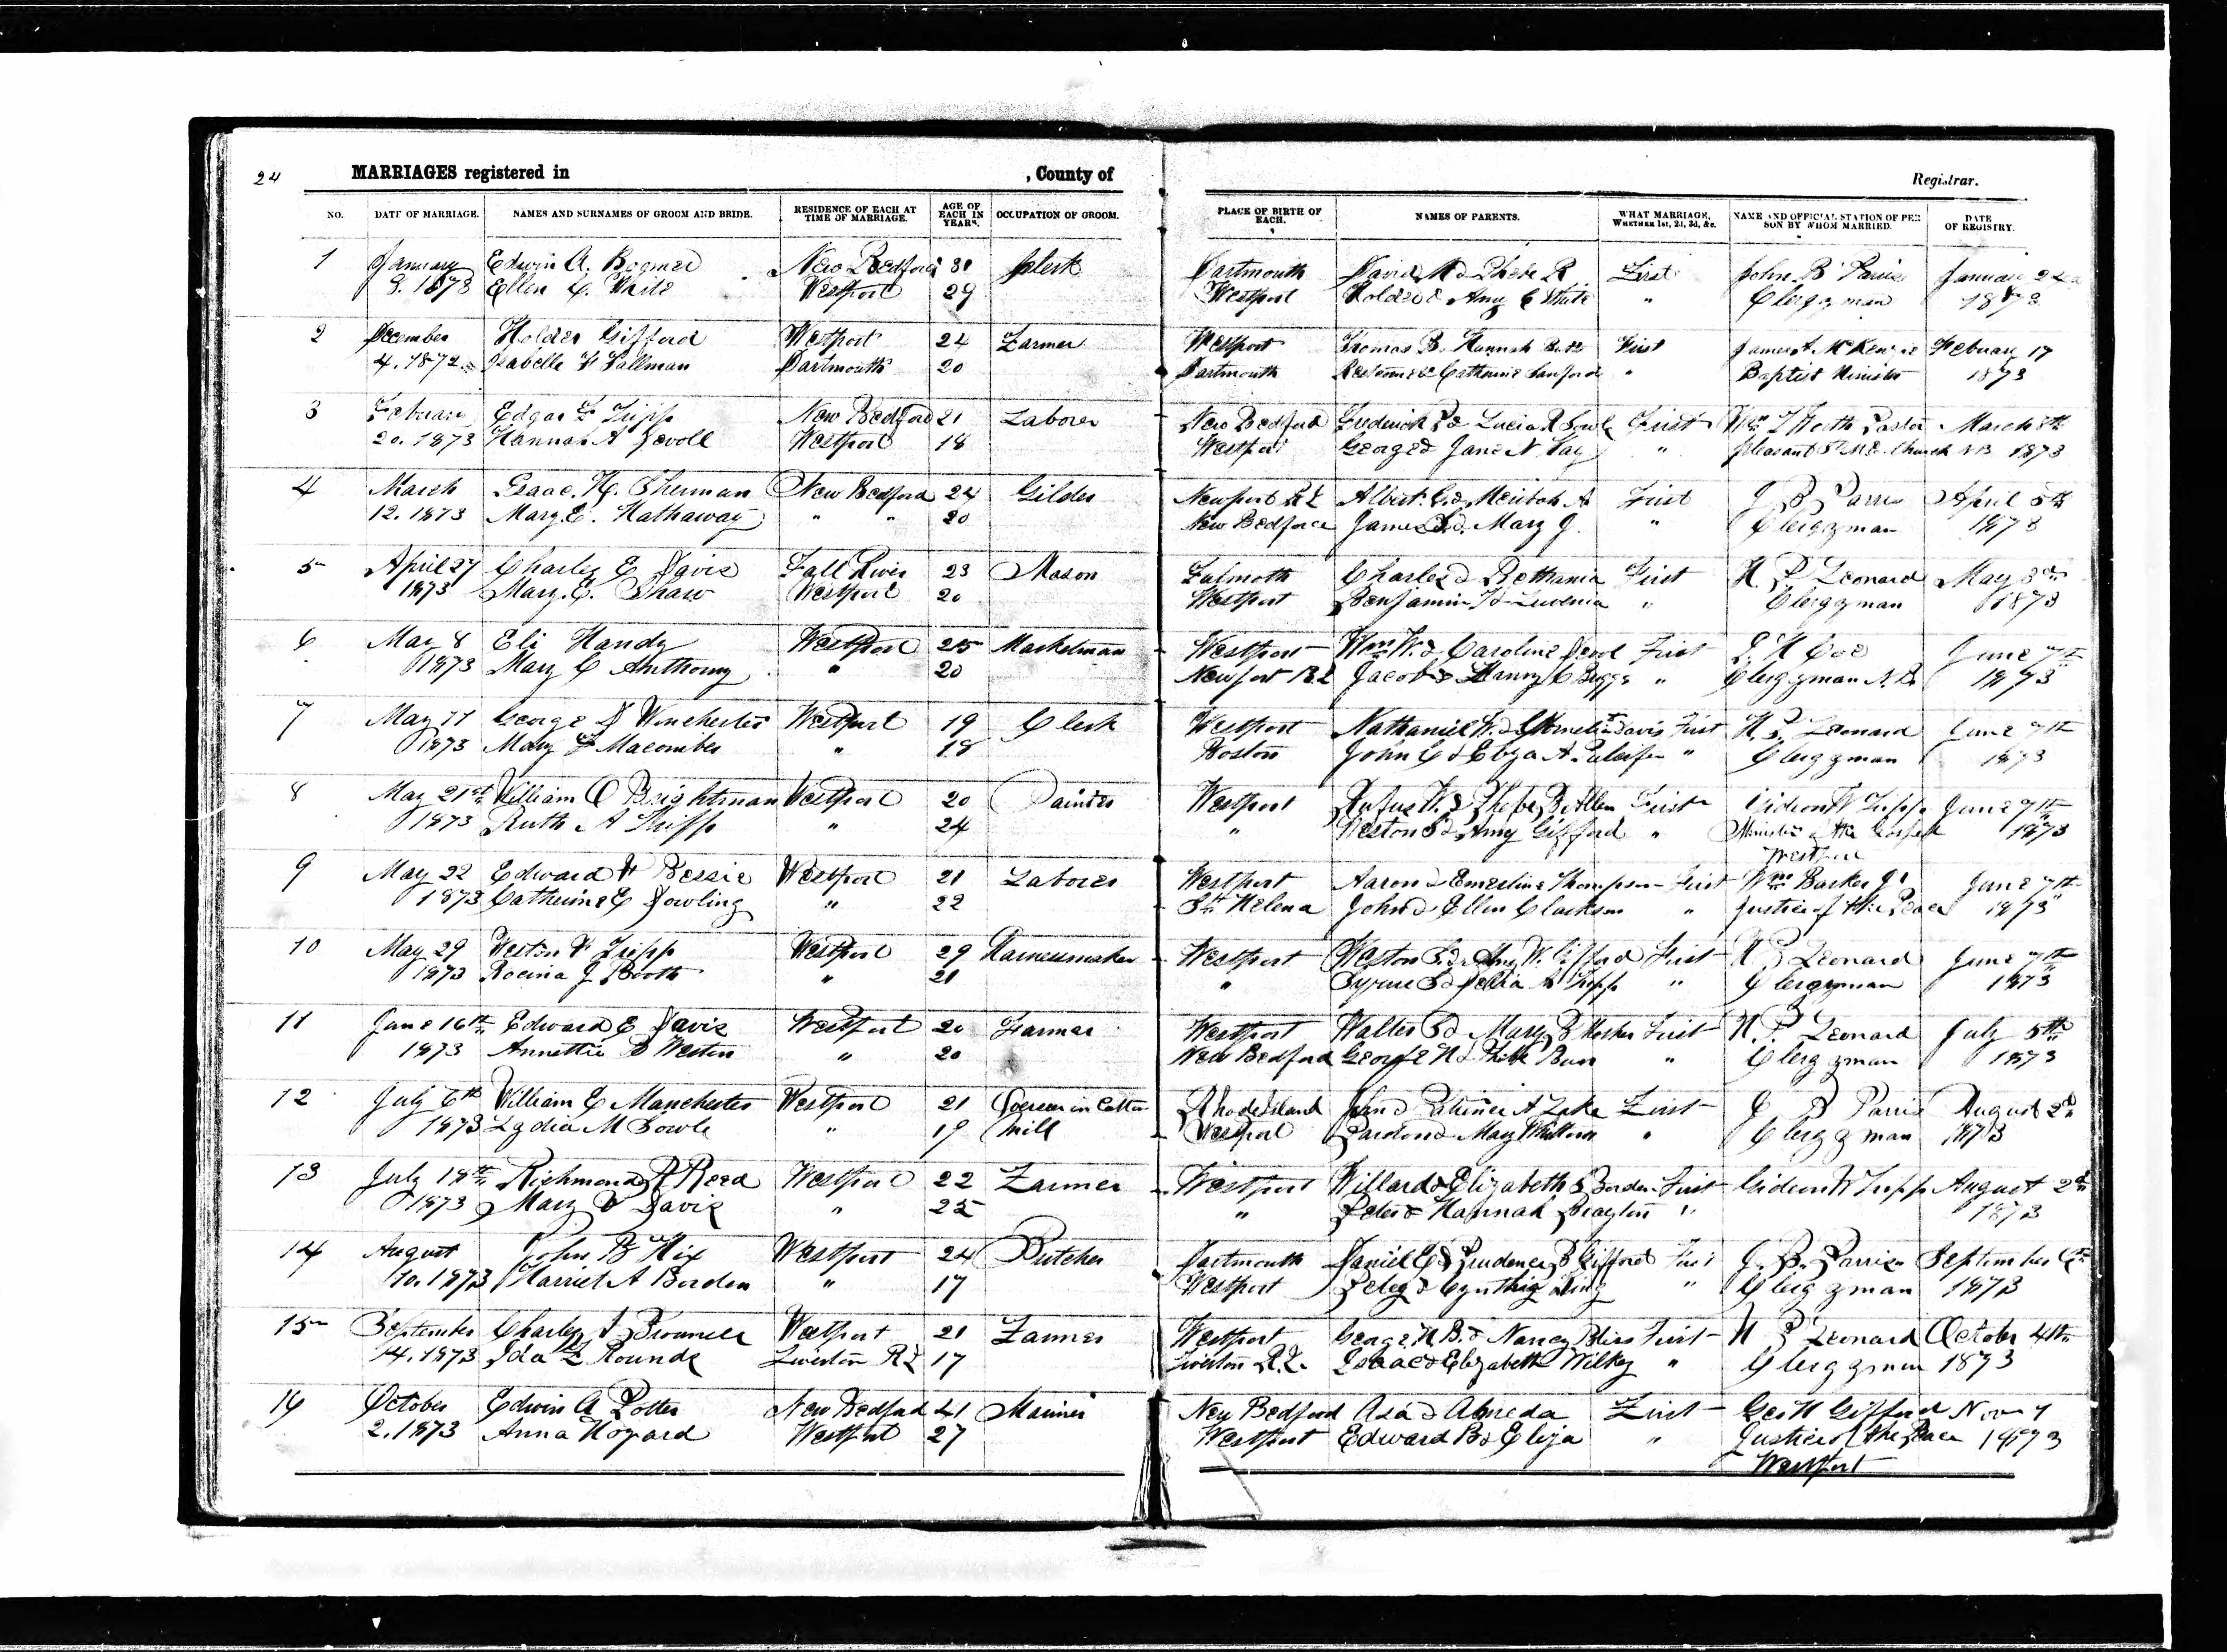 24 MARRIAGES registered in , County of Registrar.
NO. DATE OF MARRIAGE. NAMES AND SURNAMES OF GROOM AND BRIDE. RESIDENCE OF EACH AT TIME OF MARRIAGE. AGE OF EACH IN YEARS. OCCUPATION OF GROOM. PLACE OF BIRTH OF EACH. NAMES OF PARENTS. WHAT MARRIAGE, WHETHER 1st, 2d, 3d, &c. NAME AND OFFICIAL STATION OF PERSON BY WHOM MARRIED. DATE OF REGISTRY.
1 January Edwin A. New Bedford 31 Clerk Dartmouth David M & Phebe R First John B Parris January 24
8. 1873 Ellen C. White Westport 29 Westport Holder & Amy C White " Clergyman 1873
2 December Holder Gifford Westport 24 Farmer Westport Thomas B. Hannah First James A McKenzie Febuary 17
4. 1872 Isabelle F Dartmouth 20 Dartmouth Catherine Sanford " Baptist Minister 1873
3 Febuary Edgar F Tripp New Bedford 21 Laborer New Bedford Frederick P & Lucia R Sowle First Wm T Worth Pastor March 8th
20. 1873 Hannah A Devoll Westport 18 Westport George & Jane N " Pleasant St M.E. Church N B 1873
4 March Isaac. H. Sherman New Bedford 24 Gilder Newport R I Albert G. & Meribah A First J B Parris April 5th
12. 1873 Mary. E. Hathaway " " 20 New Bedford James & Mary J. " Clergyman 1873
5 April 27 Charles E Davis Fall River 23 Mason Falmoth Charles & Bethania First N. P. Leonard May 3d
1873 Mary. E. Shaw Westport 20 Westport Benjamin & " Clergyman 1873
6 May 8 Eli Handy Westport 25 Marketman Westport Wm W. & Caroline Devol First Coe June 7th
1873 Mary C Anthony " 20 Newport R I Jacob & C Boggs " Clergyman N. B. 1873
7 May 11 George D Winchester Westport 19 Clerk Westport Nathaniel & Cornelia Davis First N. P. Leonard June 7th
1873 Mary F Macomber " 18 Boston John C & Eliza A " Clergyman 1873
8 May 21st William O Brightman Westport 20 Painter Westport Rufus W. & Phebe B Allen First Gideon W Tripp June 7th
1873 Ruth A Tripp " 24 " Weston S & Amy Gifford " Minister of the Gospel 1873
Westport
9 May 22 Edward H Bessie Westport 21 Laborer Westport Aaron & Emerline Thompson First Wm Barker Jr June 7th
1873 Catherine E Dowling " 22 St Helena John & Ellen Clarkson " Justice of the Peace 1873
10 May 29 Weston V Tripp Westport 29 Harnessmaker Westport Weston S. & Amy W. Gifford First N P Leonard June 7th
1873 J Booth " 21 " Cyrus S & Delia Tripp " Clergyman 1873
11 June 16th Edward E Davis Westport 20 Farmer Westport Walter S & Mary B Mosher First N. P. Leonard July 5th
1873 Annettie Weston " 20 New Bedford George N & " Clergyman 1873
12 July 6th William E Manchester Westport 21 in Cotton Rhode Island John & A Lake First J B Parris August 2d
1873 Lydia M Sowle " 19 Mill Westport Pardon & May " Clergyman 1873
13 July 19th Richmond Reed Westport 22 Farmer Westport Willard & Elizabeth S Borden First Gideon W Tripp August 2d
1873 Mary Davis " 25 " Peter & Hannah Brayton " 1873
14 August John B Hix Westport 24 Butcher Dartmouth Daniel & Prudence B Gifford First J. B. Parris September 6th
10. 1873 Harriet A Borden " 17 Westport Peleg & Cynthia King " Clergyman 1873
15 September Charles Brownell Westport 21 Farmer Westport George N B. & Nancy Bliss First N P Leonard October 4th
14. 1873 Ida Z Rounds Tiverton R I 17 Tiverton R. I. Isaac & Elizabeth Wilkey " Clergyman 1873
16 October Edwin A Potter New Bedford 41 Mariner New Bedford Asa & Almeda First Geo H Gifford Nov 1
2. 1873 Anna Howard Westport 27 Westport Edward B & Eliza " Justice of the Peace 1873
Westport